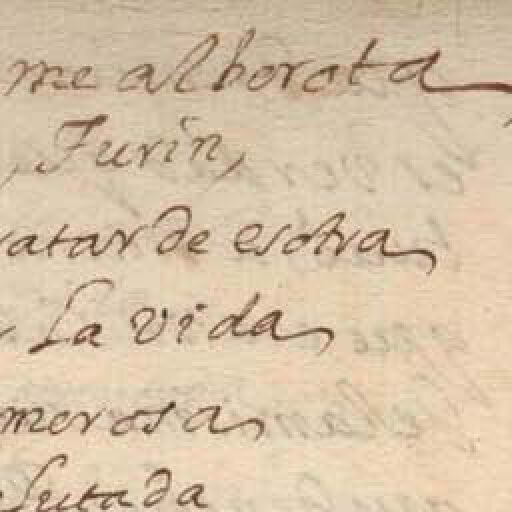 me alborota
, Turin,
ratar de esotra
La vida
morosa
sutada